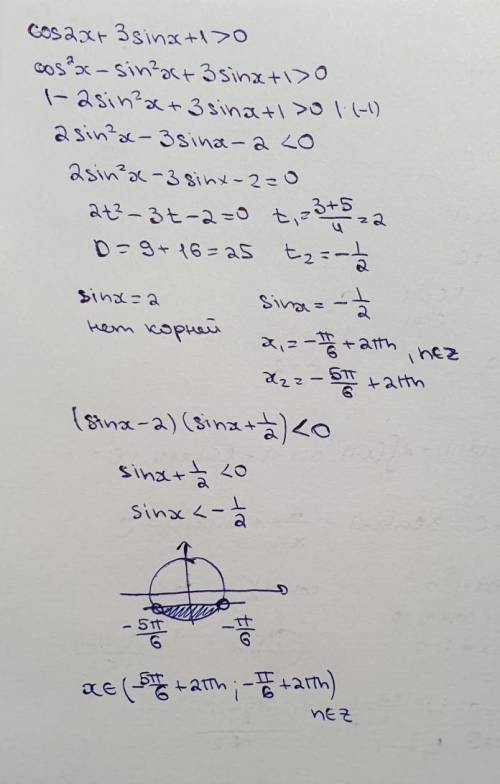 cos2x + 3sinx + 1 > 0
cos²x − sin²x + 3sinx + 1 > 0
1 − 2sin²x + 3sinx + 1 > 0 | · (−1)
2sin²x − 3sinx − 2 < 0
2sin²x − 3sinx − 2 = 0
2t² − 3t − 2 = 0 t₁ = (3+5)/4 = 2
D = 9 + 16 = 25 t₂ = −1/2
sinx = 2 sinx = −1/2
нет корней x₁ = −π/6 + 2πn, n∈Z
x₂ = −5π/6 + 2πn
(sinx − 2)(sinx + 1/2) < 0
sinx + 1/2 < 0
sinx < −1/2
−5π/6 −π/6
x∈(−5π/6 + 2πn; −π/6 + 2πn)
n∈Z